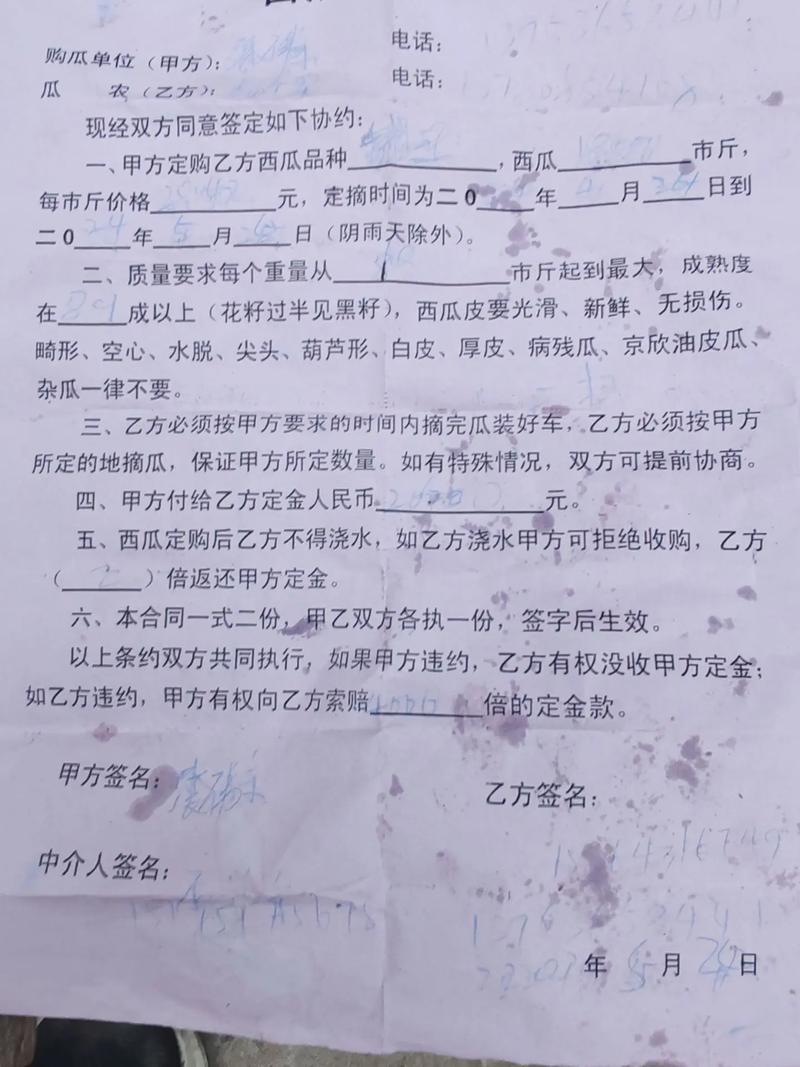 购瓜单位（甲方）：
电话：
瓜 农（乙方）：
电话：
现经双方同意签定如下协约：
一、甲方定购乙方西瓜品种，西瓜市斤，
每市斤价格元，定摘时间为二0年月日到
二0 24 年 5 月日（阴雨天除外）。
二、质量要求每个重量从市斤起到最大，成熟度
在成以上（花籽过半见黑籽），西瓜皮要光滑、新鲜、无损伤。
畸形、空心、水脱、尖头、葫芦形、白皮、厚皮、病残瓜、京欣油皮瓜、
杂瓜一律不要。
三、乙方必须按甲方要求的时间内摘完瓜装好车，乙方必须按甲方
所定的地摘瓜，保证甲方所定数量。如有特殊情况，双方可提前协商。
四、甲方付给乙方定金人民币元。
五、西瓜定购后乙方不得浇水，如乙方浇水甲方可拒绝收购，乙方
（）倍返还甲方定金。
六、本合同一式二份，甲乙双方各执一份，签字后生效。
以上条约双方共同执行，如果甲方违约，乙方有权没收甲方定金；
如乙方违约，甲方有权向乙方索赔倍的定金款。
甲方签名：
乙方签名：
中介人签名：
年 5 月日